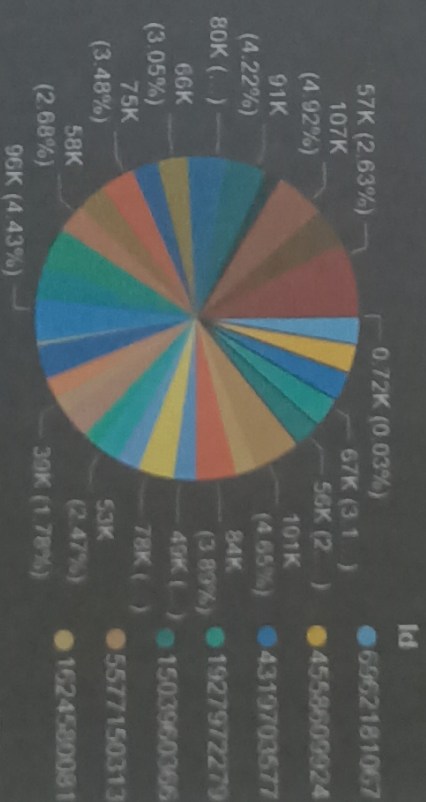 Id
6962181067
4558609924
4319703577
1927972279
1503960366
5577150313
1624580081
0.72K (0.03%)
67K (3.1...)
56K (2...)
101K
(4.65%)
84K
(3.89%)
49K (...)
78K (...)
53K
(2.47%)
39K (1.78%)
96K (4.43%)
58K
(2.68%)
75K
(3.48%)
66K
(3.05%)
80K (...)
91K
(4.22%)
107K
(4.92%)
57K (2.63%)